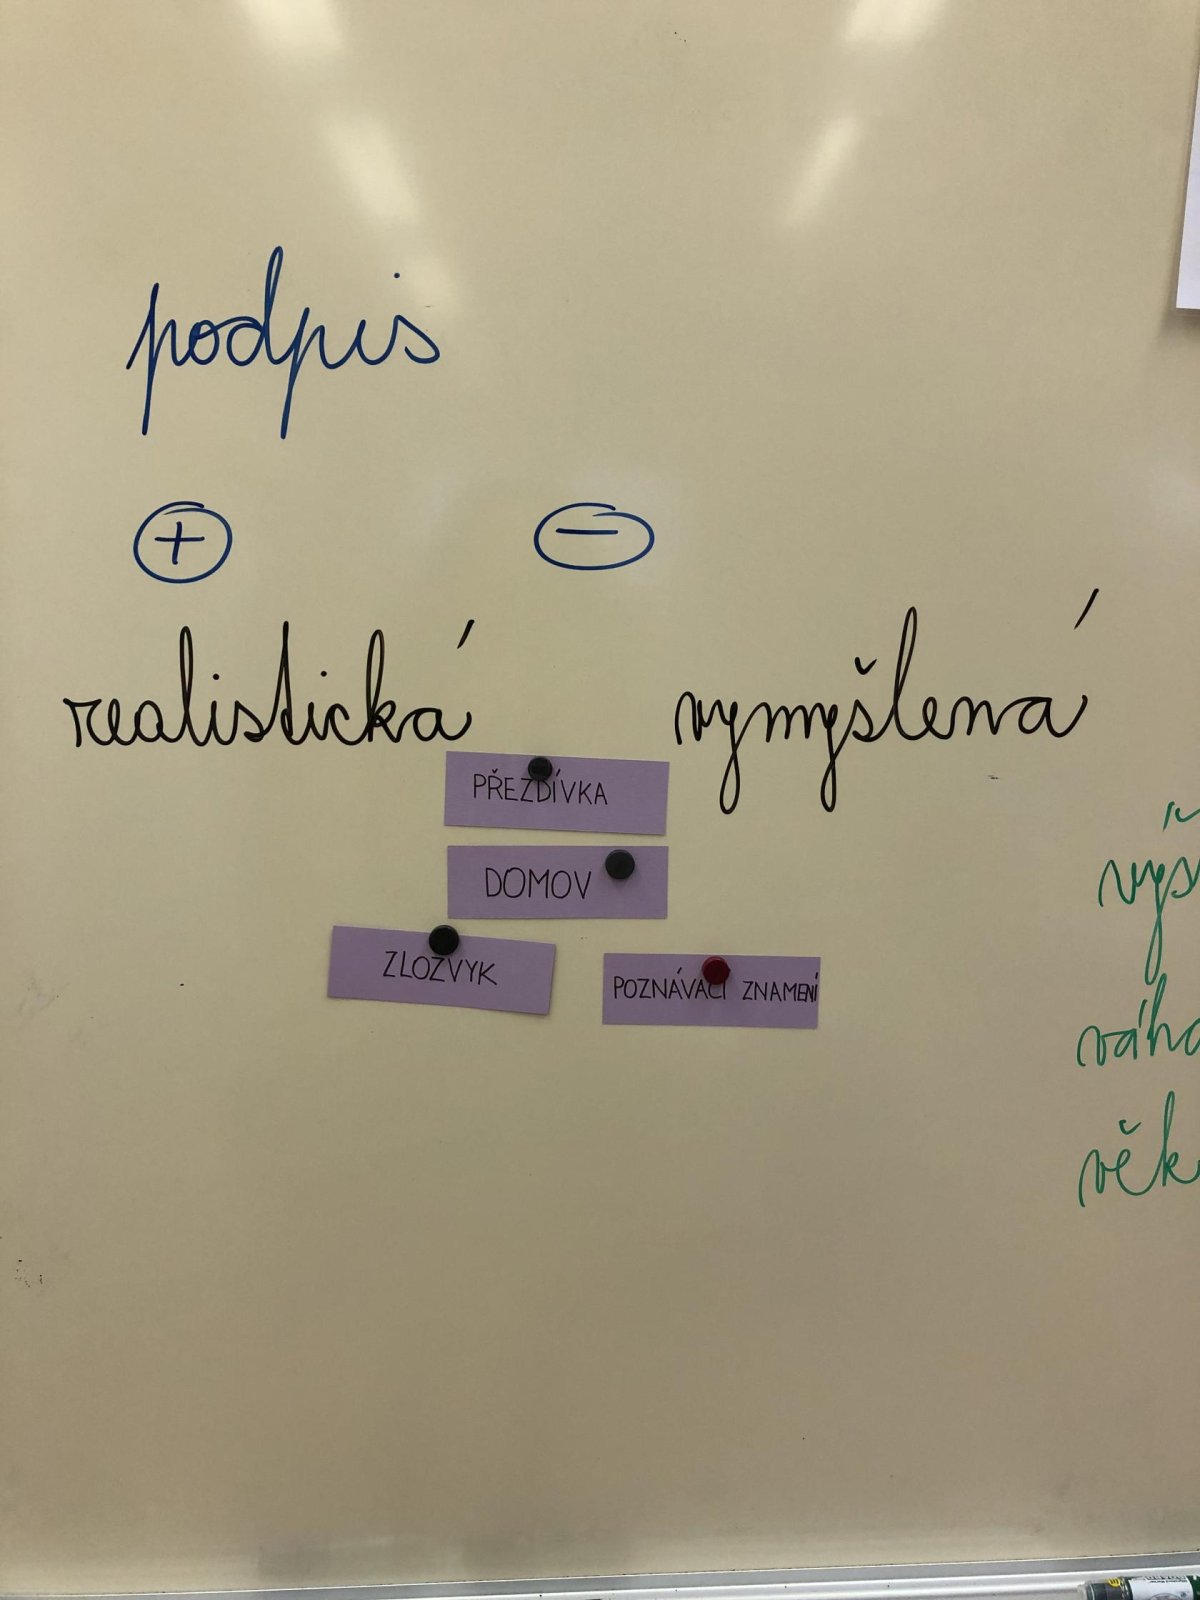 podpis
+ −
realistická vymyšlená
PŘEZDÍVKA
DOMOV
ZLOZVYK
POZNÁVACÍ ZNAMENÍ
věk